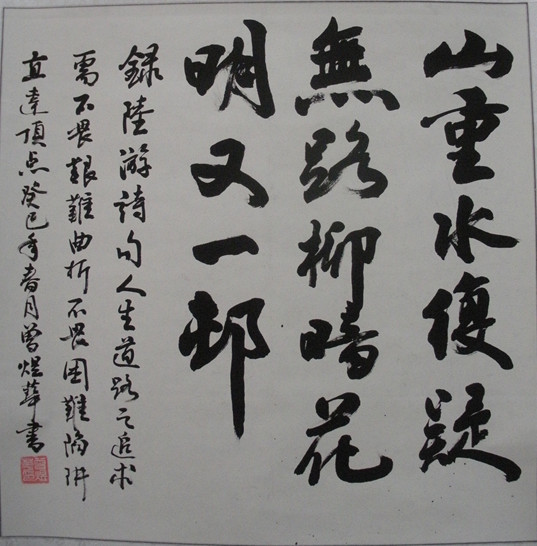 山重水復疑
無路柳暗花
明又一邨
錄陸游詩句人生道路之追求
需不畏艱難曲折不畏困難陷阱
直達頂点癸巳年春月曾煜華書